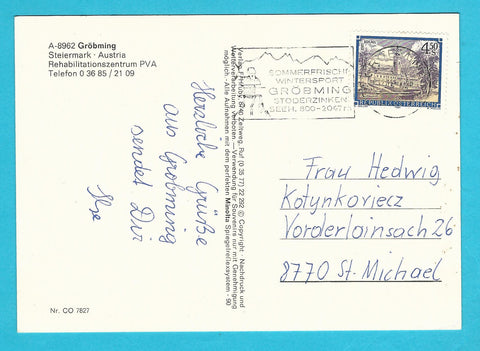 A-8962 Gröbming
Steiermark · Austria
Rehabilitationszentrum PVA
Telefon 0 36 85 / 21 09
Herzliche Grüße
aus Gröbming
sendet Dir
Ilse
Nr. CO 7827
Zeltweg, Ruf (0 35 77) 22 292 © Copyright · Nachdruck und
Weiterverarbeitung verboten — Verwendung für Souvenirs nur mit Genehmigung
möglich · Alle Aufnahmen mit dem perfekten Minolta Spiegelreflexsystem · 90
SOMMERFRISCHE
WINTERSPORT
GRÖBMING
STODERZINKEN
SEEH. 800-2047 M
4.50
REPUBLIK ÖSTERREICH
Frau Hedwig
Kotynkoviecz
Vorderlainsach 26
8770 St. Michael